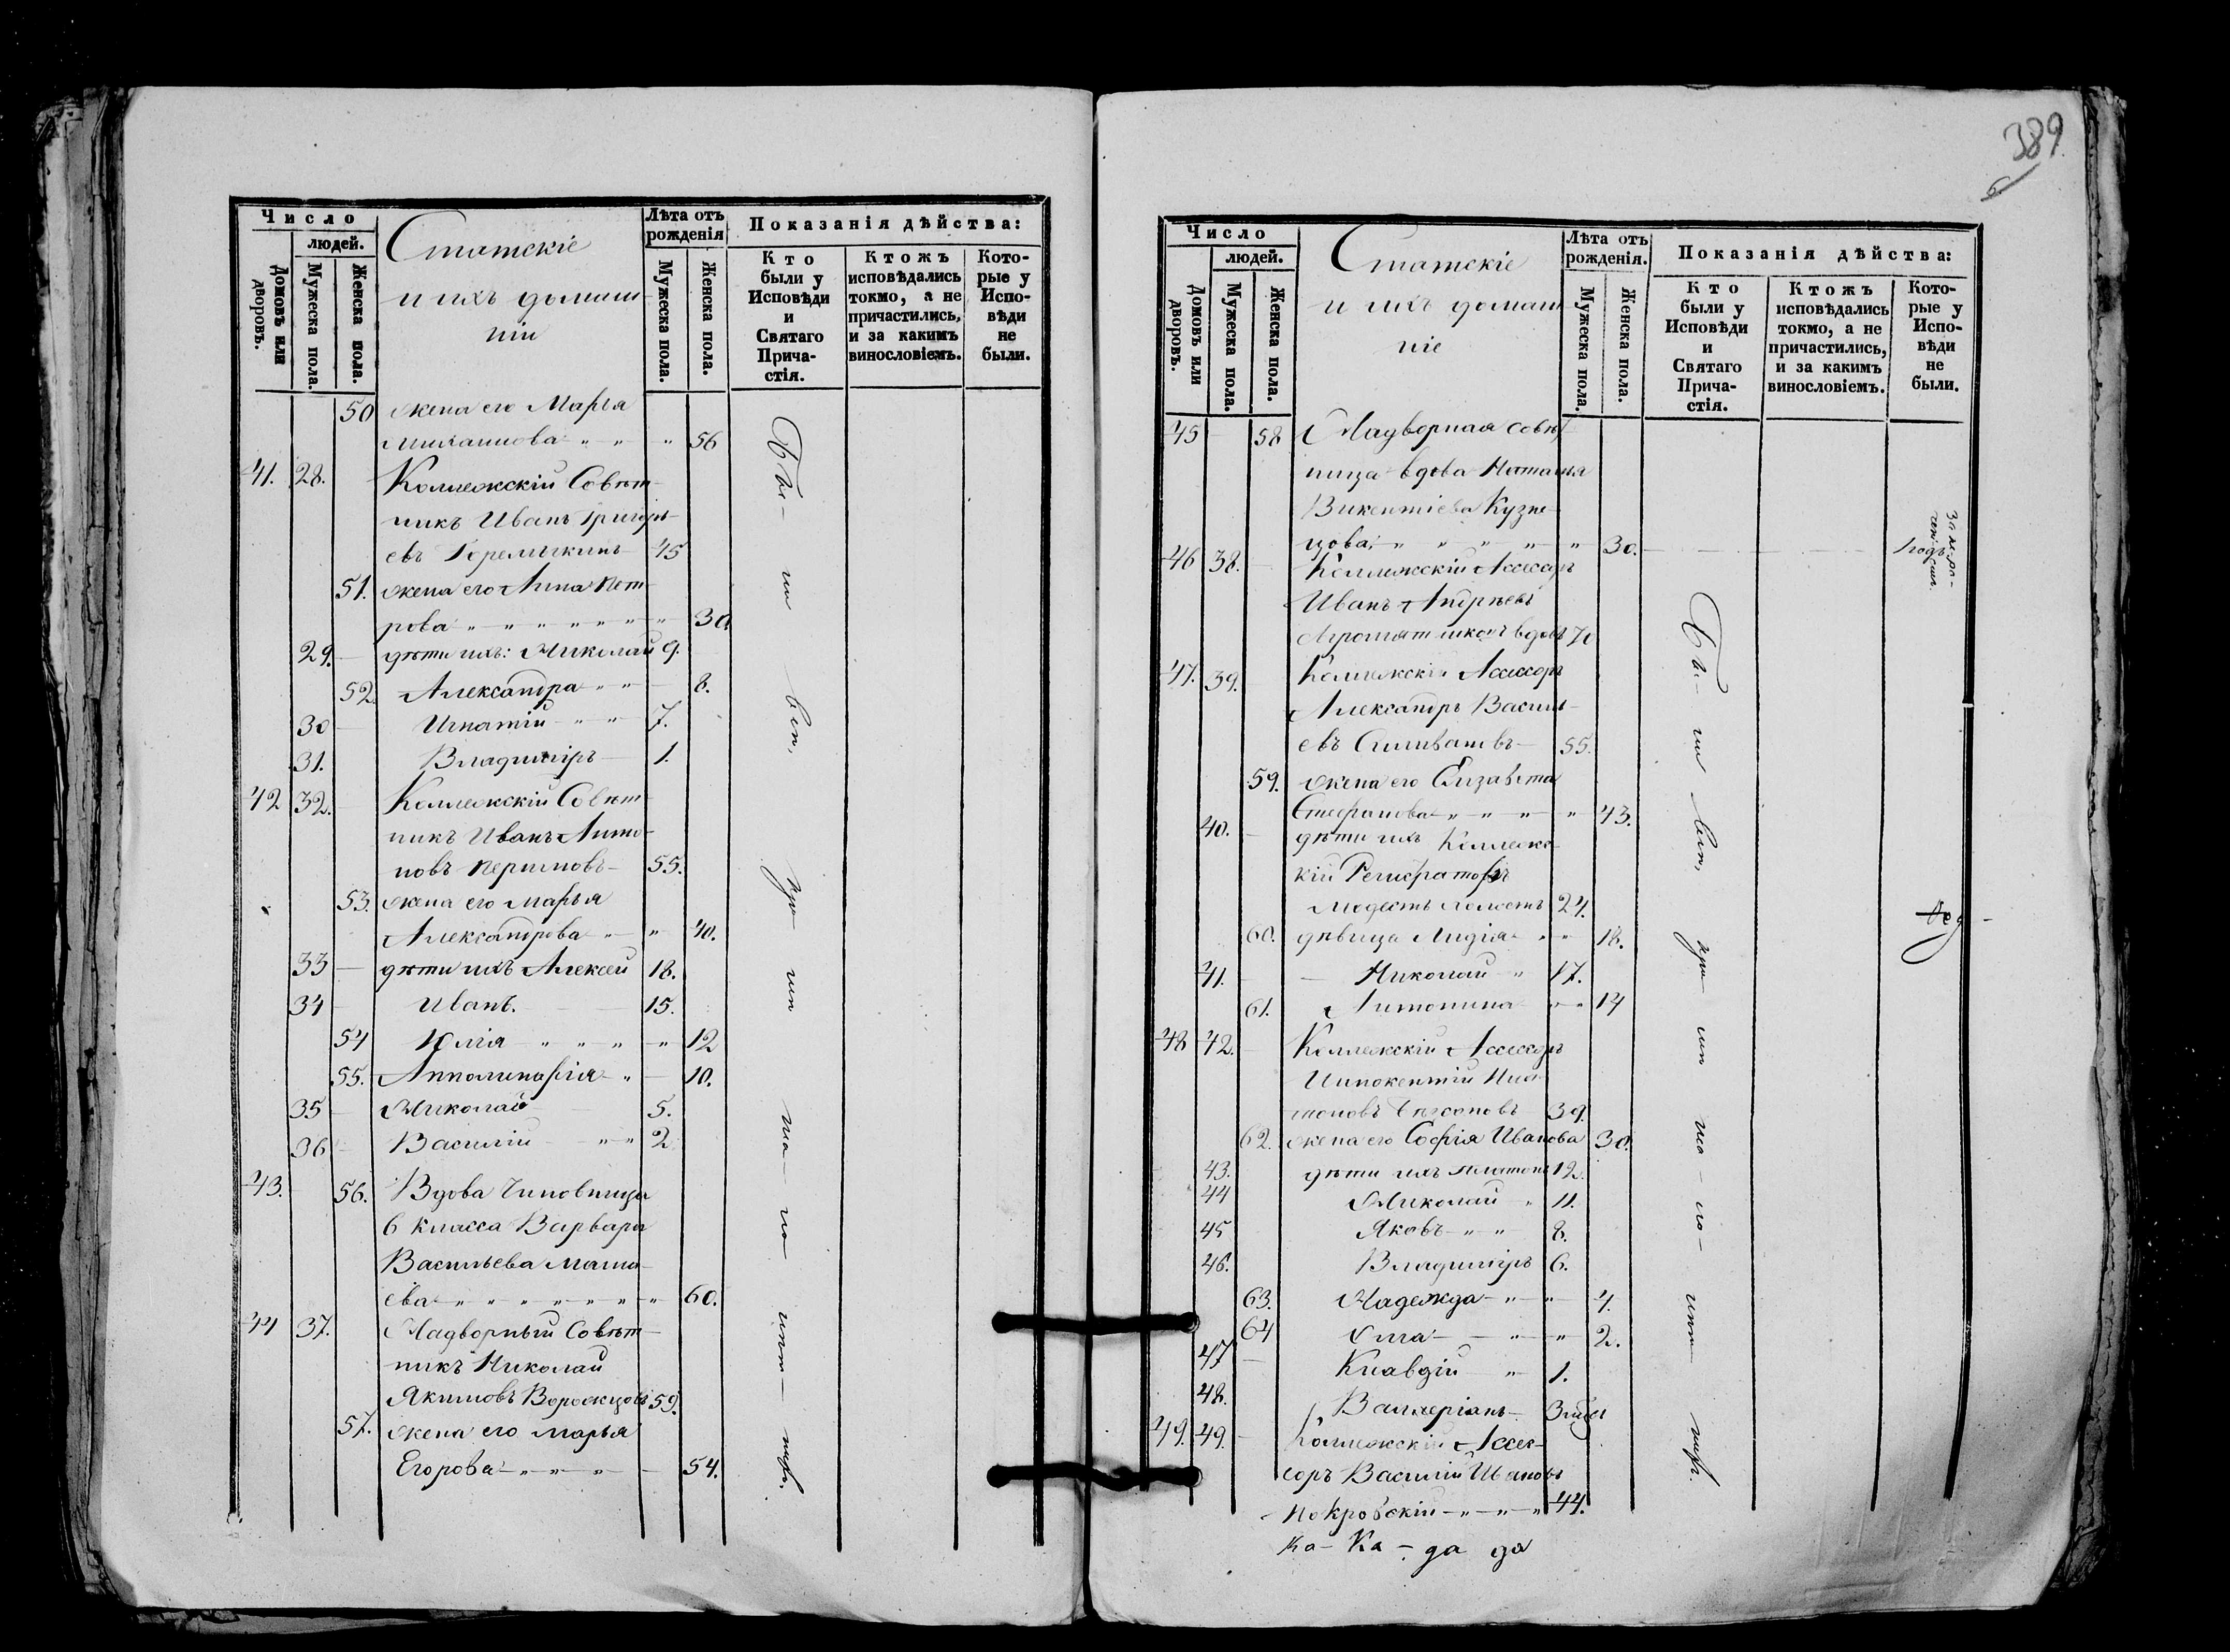 389
Число
людей.
Домовъ или дворовъ.
Мужеска пола.
Женска пола.
Статскіе
и ихъ домаш-
ніи
Лѣта отъ
рожденія
Мужеска пола.
Женска пола.
Показанія дѣйства:
Кто
были у
Исповѣди
и
Святаго
Прича-
стія.
Ктожъ
исповѣдались
токмо, а не
причастились,
и за какимъ
винословіемъ.
Кото-
рые у
Испо-
вѣди
не
были.
50 жена его Марья
Михаилова " " " 56
41. 28. Коллежскій Совѣт-
никъ Иванъ Григорь-
евъ Горемыкинъ 45
51. жена его Анна Пет-
рова " " " " " " " 30.
29. дѣти ихъ: Николай 9.
52 Александра " " 8.
30 Игнатій " " 7.
31. Владиміръ 1.
42 32. Коллежскій Совѣт-
никъ Иванъ Анто-
новъ 55.
53. жена его Марья
Александрова " " 40.
33 дѣти ихъ Алексѣй 18.
34 Иванъ. 15.
54 Юлія " " " " 12
55. Апполинарія " 10.
35 Николай 5.
36 Василій " " 2
43. 56. Вдова Чиновница
6 класса Варвара
Васильева
ева " " " " " " " 60.
44 37. Надворный Совѣт-
никъ Николай
Якимовъ Ворожцовъ 59.
57. жена его Марья
Егорова " " " 54.
Бы- ли вси, при- ча-
Число
людей.
Домовъ или дворовъ.
Мужеска пола.
Женска пола.
Статскіе
и ихъ домаш
ніе
Лѣта отъ
рожденія.
Мужеска пола.
Женска пола.
Показанія дѣйства:
Кто
были у
Исповѣди
и
Святаго
Прича-
стія.
Ктожъ
исповѣдались
токмо, а не
причастились,
и за какимъ
винословіемъ.
Кото-
рые у
Испо-
вѣди
не
были.
45 58 Надворная совѣт
ница вдова Наталья
Викентіева Кузне-
цова, " " " " " 30.
46 38. Коллежскій Ассесоръ
Иванъ Андреевъ
вдовъ 70
47. 39. Коллежскій Ассесоръ
Александръ Василь-
евъ Силивановъ 55.
59. жена его Елизавета
Стефанова " " " " 43.
40. дѣти ихъ Коллежс-
кій Регистраторъ
Модестъ 24.
60. дѣвица Лидія " " 18.
41. Николай " 17.
61. Антонина " " 14
48 42. Коллежскій Ассесоръ
Иннокентій Пла-
тоновъ 39.
62. жена его Софія Иванова 30.
43. дѣти ихъ Платонъ 12.
44 Николай " 11.
45 Яковъ " " 8.
46. Владиміръ 6.
63. Надежда " " 4.
64 Ольга " " 2.
47 Клавдій " 1.
48. Валеріанъ
49. 49. Коллежскій Ассес-
соръ Василій Ивановъ
Покровскій " " " 44.
Ка- Ка- да да